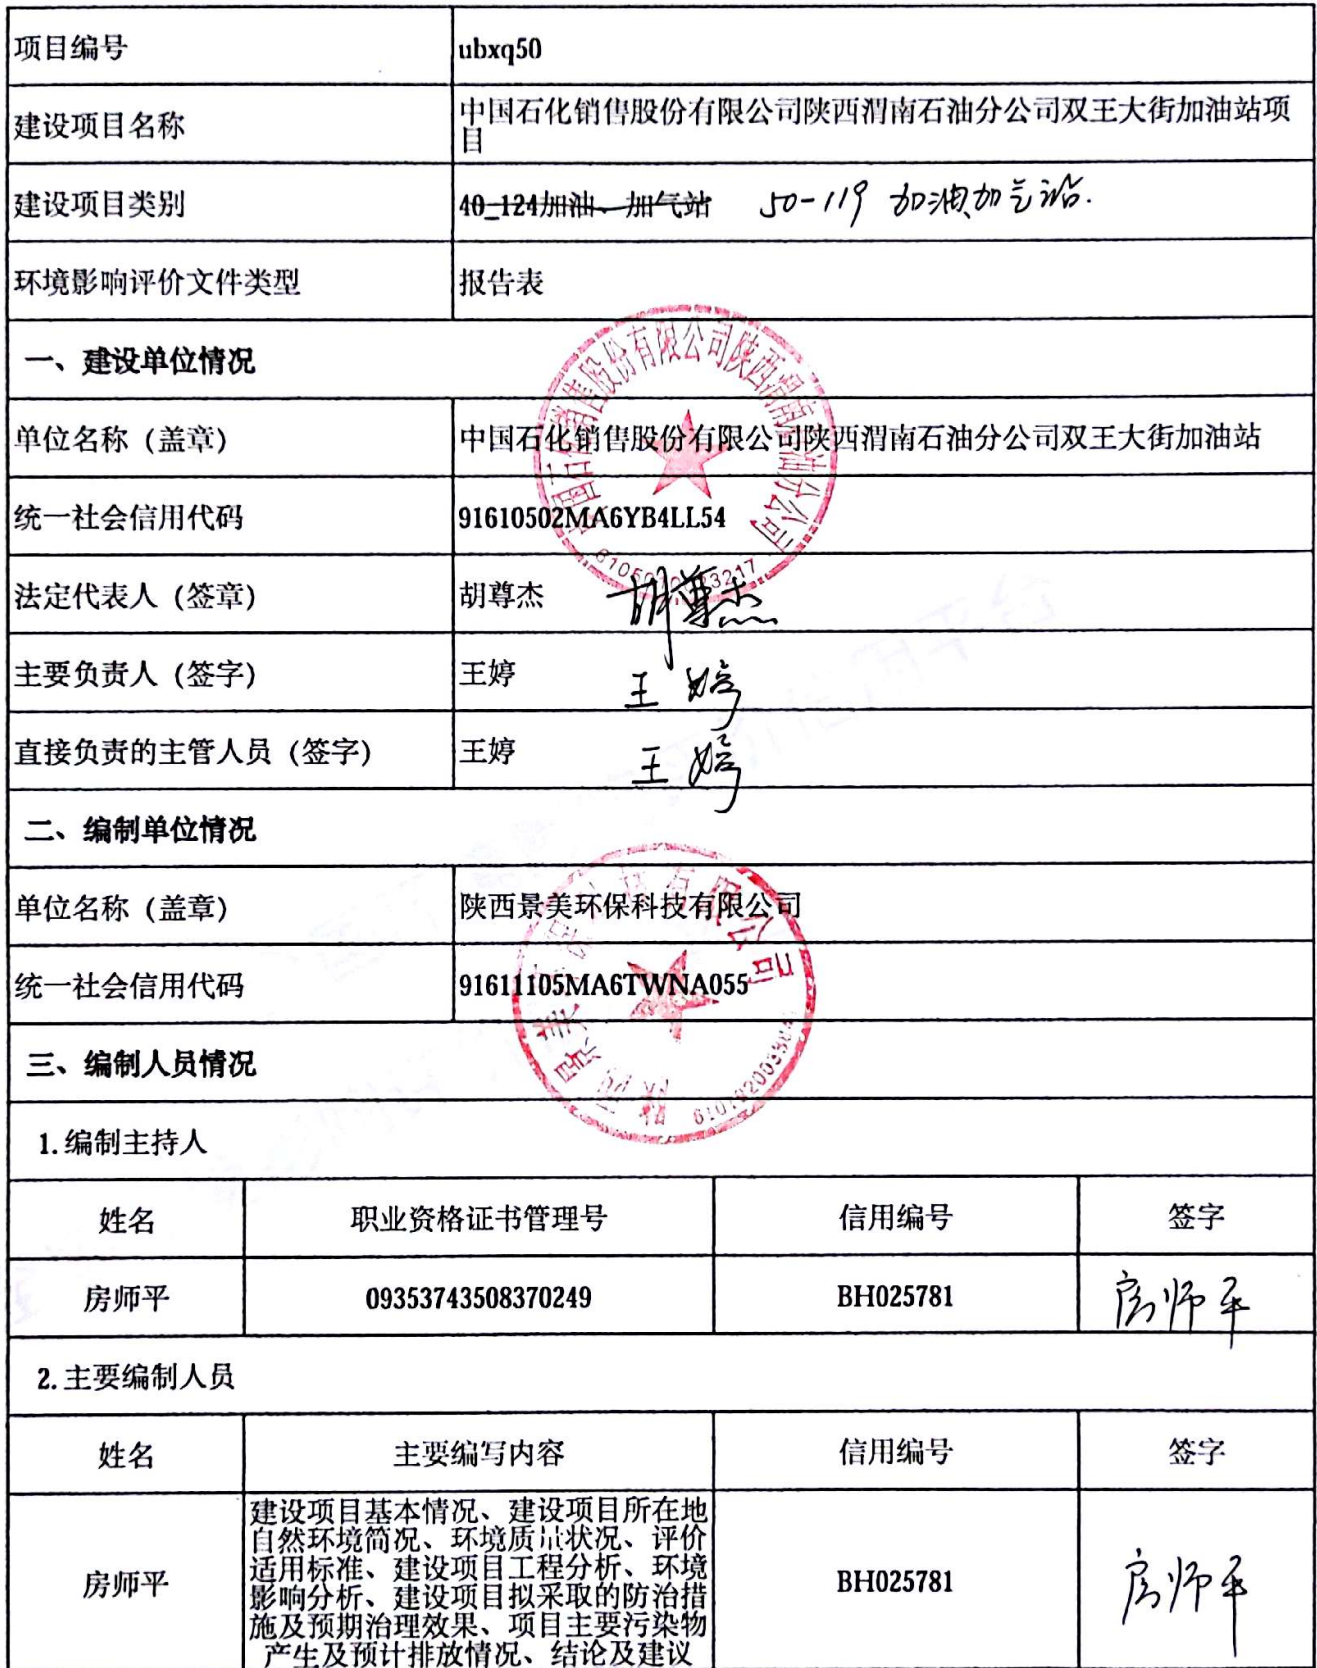 项目编号 ubxq50
建设项目名称 中国石化销售股份有限公司陕西渭南石油分公司双王大街加油站项
目
建设项目类别 40_124加油、加气站 50-119 加油加气站.
环境影响评价文件类型 报告表
一、建设单位情况
单位名称（盖章） 中国石化销售股份有限公司陕西渭南石油分公司双王大街加油站
中国石化销售股份有限公司陕西渭南石油分公司
统一社会信用代码 91610502MA6YB4LL54
法定代表人（签章） 胡尊杰 胡尊杰
主要负责人（签字） 王婷 王婷
直接负责的主管人员（签字） 王婷 王婷
二、编制单位情况
单位名称（盖章） 陕西景美环保科技有限公司
陕西景美环保科技有限公司
统一社会信用代码 91611105MA6TWNA055
三、编制人员情况
1.编制主持人
姓名 职业资格证书管理号 信用编号 签字
房师平 09353743508370249 BH025781 房师平
2.主要编制人员
姓名 主要编写内容 信用编号 签字
建设项目基本情况、建设项目所在地
自然环境简况、环境质量状况、评价
适用标准、建设项目工程分析、环境
房师平 影响分析、建设项目拟采取的防治措 BH025781 房师平
施及预期治理效果、项目主要污染物
产生及预计排放情况、结论及建议